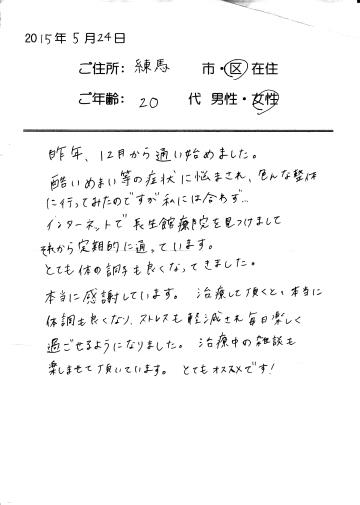 2015年5月24日
ご住所: 練馬 市・区 在住
ご年齢: 20 代 男性・女性
昨年、12月から通い始めました。
酷いめまい等の症状に悩まされ、色んな整体
に行ってみたのですが私には合わず…
インターネットで長生館療院を見つけまして
それから定期的に通っています。
とても体の調子も良くなってきました。
本当に感謝しています。 治療して頂くと、本当に
体調も良くなり、ストレスも軽減され毎日楽しく
過ごせるようになりました。 治療中の雑談も
楽しませて頂いています。 とてもオススメです!